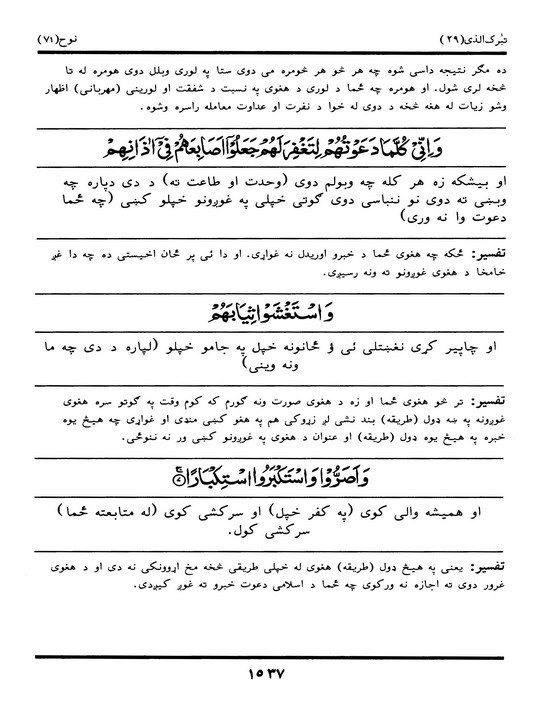 تبٰرک الذی(۲۹)
نوح(۷۱)
ده مګر نتیجه داسی شوه چه هر څو هر څومره می دوی ستا په لوری وبلل دوی هومره له تا
څخه لری شول. او هومره چه ځما د لوری د هغوی په نسبت د شفقت او لورینی (مهربانی) اظهار
وشو زیات له هغه څخه د دوی له خوا د نفرت او عداوت معامله راسره وشوه.
وَاِنِّیْ كُلَّمَا دَعَوْتُهُمْ لِتَغْفِرَ لَهُمْ جَعَلُوْۤا اَصَابِعَهُمْ فِیْۤ اٰذَانِهِمْ
او بیشکه زه هر کله چه وبولم دوی (وحدت او طاعت ته) د دی دپاره چه
وبښی ته دوی نو ننباسی دوی ګوتی خپلی په غوږونو خپلو کښی (چه ځما
دعوت وا نه وری)
تفسیر: ځکه چه هغوی ځما د خبرو اوریدل نه غواړی. او دا ئی پر ځان اخیستی ده چه دا غږ
خامخا د هغوی غوږونو ته ونه رسیږی.
وَاسْتَغْشَوْا ثِیَابَهُمْ
او چاپیر کړی نغښتلی ئی ؤ ځانونه خپل په جامو خپلو (لپاره د دی چه ما
ونه وینی)
تفسیر: تر څو هغوی ځما او زه د هغوی صورت ونه ګورم که کوم وقت په ګوتو سره هغوی
غوږونه په ښه ډول (طریقه) بند نشی لږ زړوکی هم په هغو کښی منډی او غواړی چه هیڅ یوه
خبره په هیڅ یوه ډول (طریقه) او عنوان د هغوی په غوږونو کښی ور نه ننوځی.
وَاَصَرُّوْا وَاسْتَكْبَرُوا اسْتِكْبَارًا ۷
او همیشه والی کوی (په کفر خپل) او سرکشی کوی (له متابعته ځما)
سرکشی کول.
تفسیر: یعنی په هیڅ ډول (طریقه) هغوی له خپلی طریقی څخه مخ اړوونکی نه دی او د هغوی
غرور دوی ته اجازه نه ورکوی چه ځما د اسلامی دعوت خبرو ته غوږ کیږدی.
۱۵۳۷